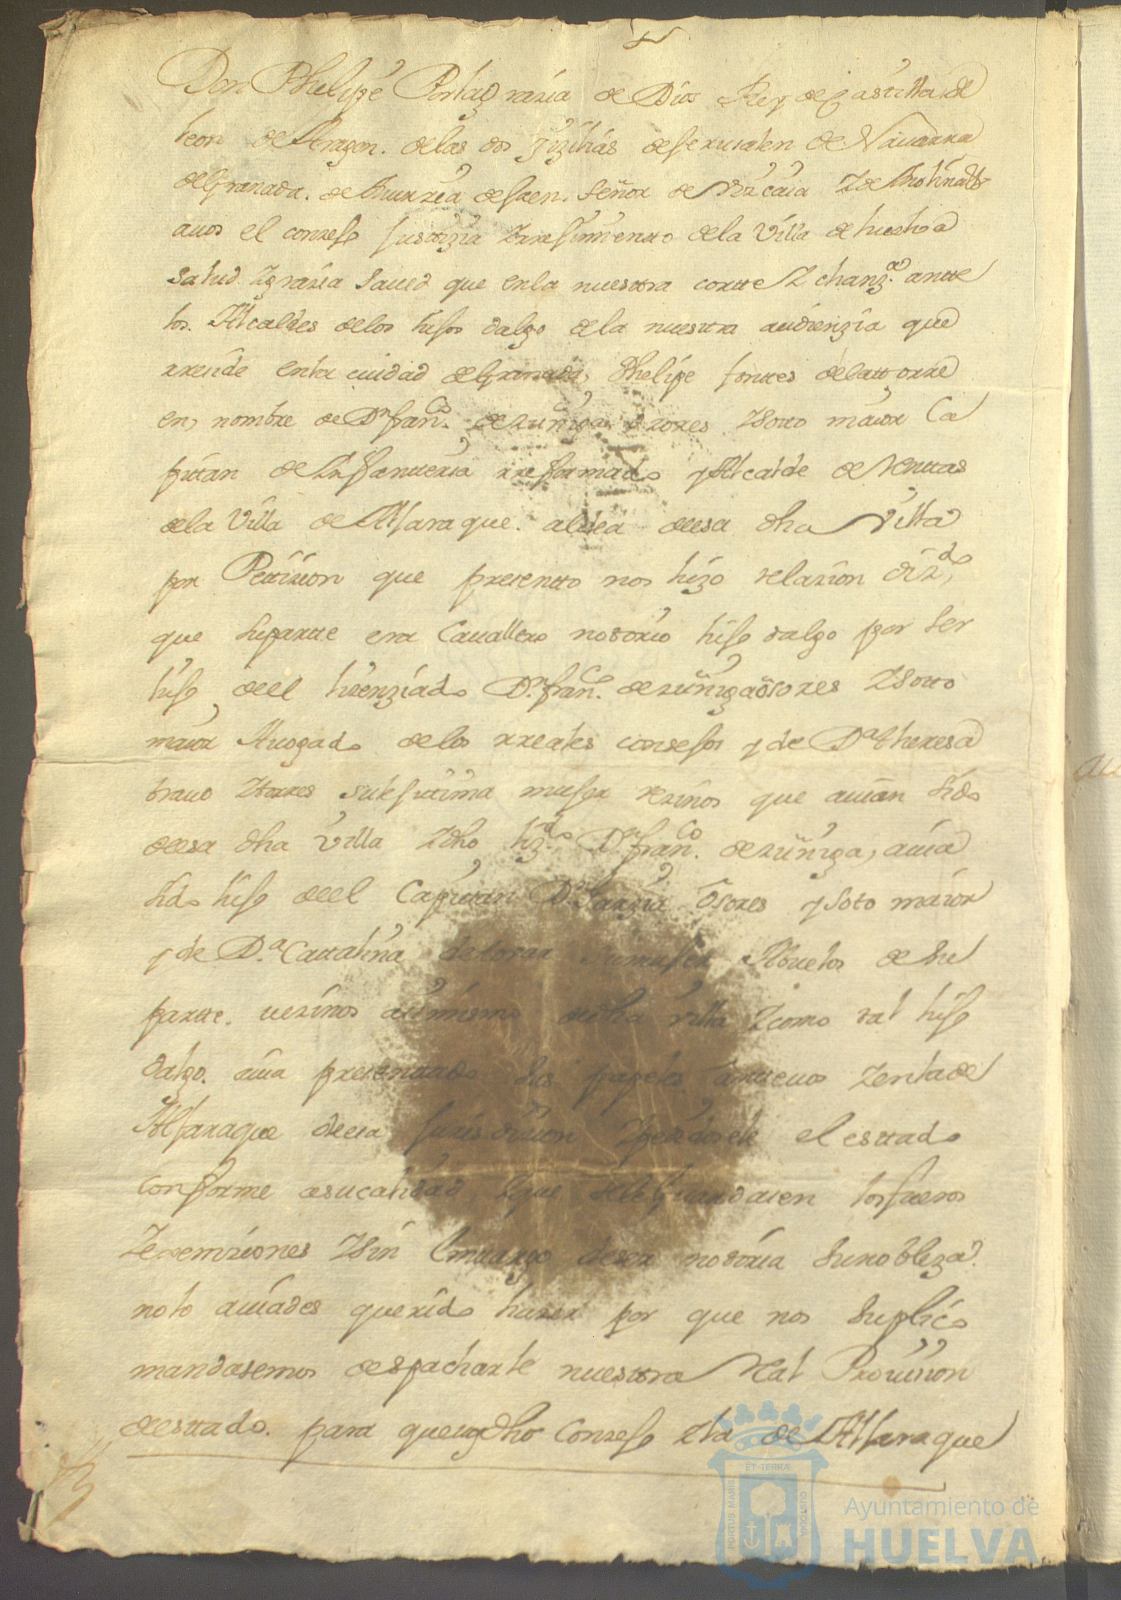 Don Phelipe Porlagrazia de Dios Rey de Castilla de
leon de Aragon. delas dos Sizilias de Jerusalen de Nauarra
de Granada. de Murzia de Jaen. señor de Vizcaia Z de Molina &
auos el conzejo Justizia Z rrejimiento de la Villa de huelba
salud Z grazia saued que enla nuestra cortte Z chanz.ª antte
los. Alcaldes delos hijos dalgo dela nuestra audienzia que
rreside enla ciudad de Granada, Phelipe fonttes delattorre
en nombre de Dn franco. de zuñiga osores Zsotto maior Ca
pitan de Ynfantteria rreformado y Alcalde de Renttas
dela Villa de Aljaraque. aldea deesa dha Villa
por Pettizion que presentto nos hizo relazion dizdo
que suparte era Cauallero nottorio hijo dalgo por ser
hijo deel lizenziado Dn. franco. de zuñiga osores Zsotto
maior Auogado de los rreales consejos y de Dª theresa
brauo Z torres sulejitima mujer vezinos que auian sido
deesa dha Villa Z dho lizdo Dn franco. de zuñiga, auia
sido hijo deel Capitan Dn Garzia Osores y soto maior
y de D.ª Cattalina de touar sumujer Abuelos de su
partte. vezinos asimismo desdha villa Zcomo tal hijo
dalgo. auia presenttado sus papeles antteuos Z enlade
Aljaraque deesa Jurisdizion Z pedidosele el esttado
conforme asucalidad Zque sele Guardasen losfueros
Z exempziones Zsin Embargo deser nottoria su nobleza.
nolo auiades querido hazer por que nos suplico
mandasemos despacharle nuestra Real Prouision
desttado. para que eldho Conzejo Z la de Aljaraque
ET TERRÆ
PORTUS MARIS
CUSTODIA
Ayuntamiento de
HUELVA